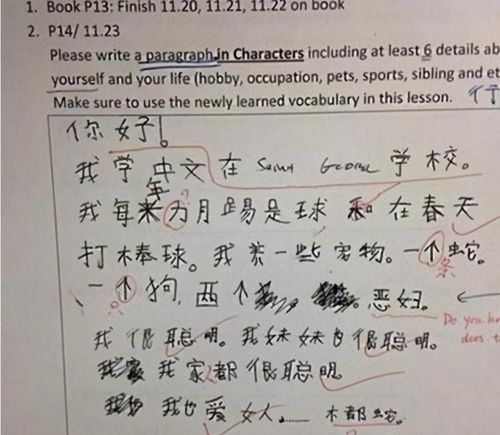 1. Book P13: Finish 11.20, 11.21, 11.22 on book
2. P14/ 11.23
Please write a paragraph in Characters including at least 6 details ab
yourself and your life (hobby, occupation, pets, sports, sibling and et
Make sure to use the newly learned vocabulary in this lesson.
你好!
我学中文在 Saint George 学校。
年
我每米力月踢是球和在春天
打棒球。我养一些宠物。一个蛇.
条
一个狗, 两个 恶妇。
Do you
does t
我很聪明。我妹妹也很聪明。
我家都很聪明
我也爱女人……